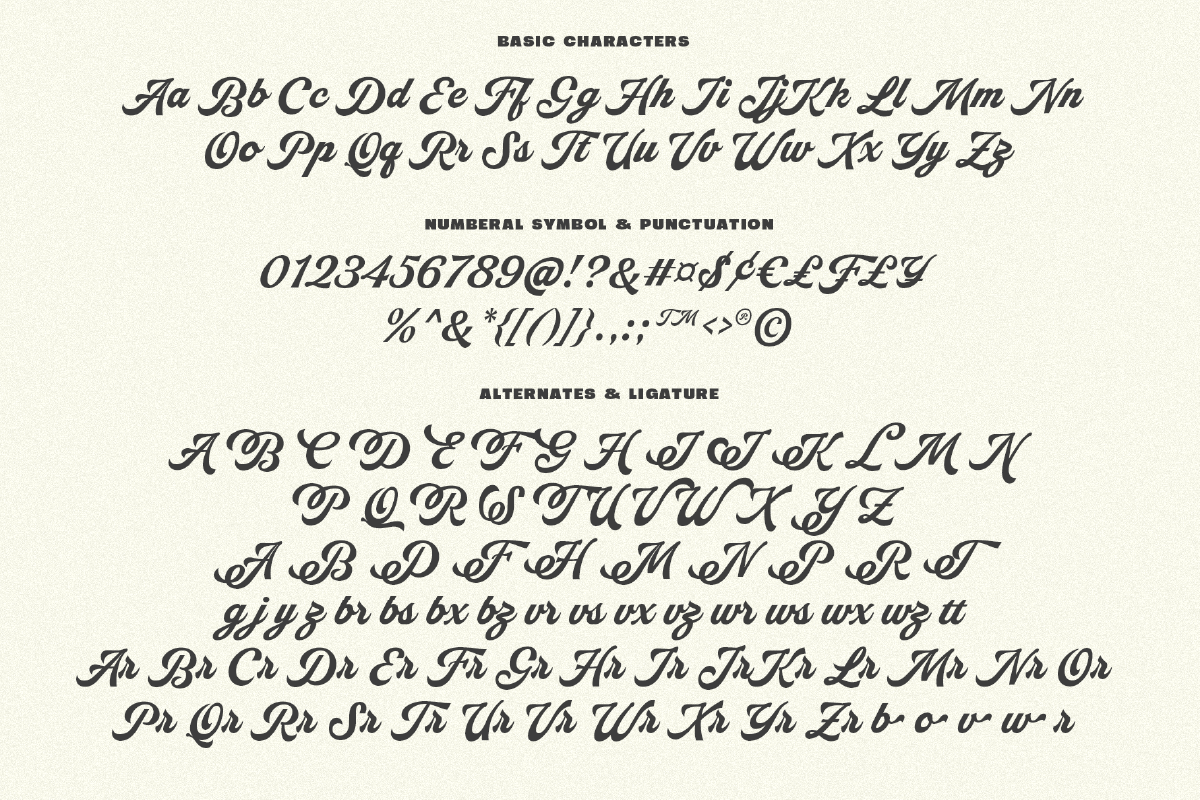 BASIC CHARACTERS
Aa Bb Cc Dd Ee Ff Gg Hh Ii Jj Kk Ll Mm Nn
Oo Pp Qq Rr Ss Tt Uu Vv Ww Xx Yy Zz
NUMBERAL SYMBOL & PUNCTUATION
0123456789@!?&#¤$¢€£₣£¥
%^&*{[()]}.,:;™<>®©
ALTERNATES & LIGATURE
A B C D E F G H I J K L M N
P Q R S T U V W X Y Z
A B D F H M N P R T
g j y z br bs bx bz vr vs vx vz wr ws wx wz tt
Ar Br Cr Dr Er Fr Gr Hr Ir Jr Kr Lr Mr Nr Or
Pr Qr Rr Sr Tr Ur Vr Wr Xr Yr Zr b o v w r